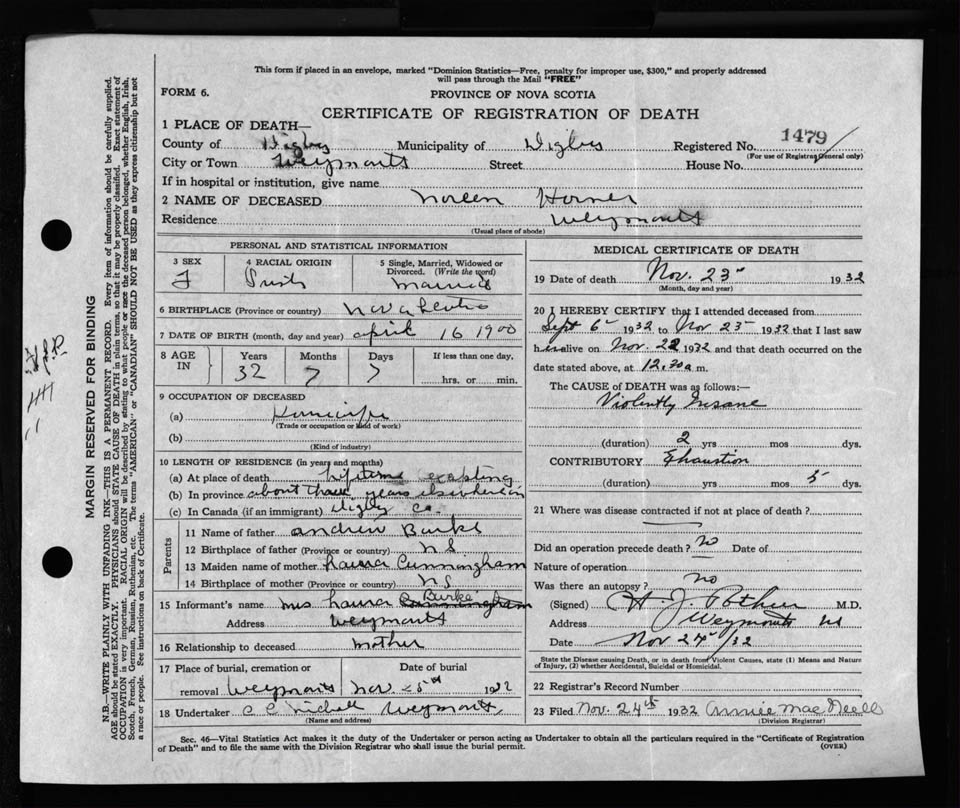 This form if placed in an envelope, marked "Dominion Statistics—Free, penalty for improper use, $300," and properly addressed
will pass through the Mail "FREE"
FORM 6.
PROVINCE OF NOVA SCOTIA
CERTIFICATE OF REGISTRATION OF DEATH
1 PLACE OF DEATH—
1479
County of Digby Municipality of Digby Registered No.
(For use of Registrar General only)
City or Town Weymouth Street House No.
If in hospital or institution, give name
2 NAME OF DECEASED Noreen Horner
Residence Weymouth
(Usual place of abode)
PERSONAL AND STATISTICAL INFORMATION
3 SEX 4 RACIAL ORIGIN 5 Single, Married, Widowed or
Divorced. (Write the word)
F Married
6 BIRTHPLACE (Province or country) Nova Scotia
7 DATE OF BIRTH (month, day and year) April 16 1900
8 AGE IN Years Months Days If less than one day,
32 7 7 hrs. or min.
9 OCCUPATION OF DECEASED
(a) Housewife
(Trade or occupation or kind of work)
(b)
(Kind of industry)
10 LENGTH OF RESIDENCE (in years and months)
(a) At place of death lifetime excepting
(b) In province about three years elsewhere in
(c) In Canada (if an immigrant) Digby Co.
Parents
11 Name of father Andrew Burke
12 Birthplace of father (Province or country) N S.
13 Maiden name of mother Laura Cunningham
14 Birthplace of mother (Province or country) N S
15 Informant's name Mrs Laura Cunningham Burke
Address Weymouth
16 Relationship to deceased Mother
17 Place of burial, cremation or Date of burial
removal Weymouth Nov 25th 1932
18 Undertaker C E Weymouth
(Name and address)
MEDICAL CERTIFICATE OF DEATH
19 Date of death Nov. 23rd 1932
(Month, day and year)
20 I HEREBY CERTIFY that I attended deceased from
Sept 6 1932 to Nov 23 1932 that I last saw
h er alive on Nov. 22 1932 and that death occurred on the
date stated above, at 12.30 a m.
The CAUSE OF DEATH was as follows:—
Violently Insane
(duration) 2 yrs mos dys.
CONTRIBUTORY Exhaustion
(duration) yrs mos 5 dys.
21 Where was disease contracted if not at place of death?
Did an operation precede death? no Date of
Nature of operation
Was there an autopsy? no
(Signed) H. J. Pothier M.D.
Address Weymouth NS
Date Nov 24th /32
State the Disease causing Death, or in death from Violent Causes, state (1) Means and Nature
of Injury, (2) whether Accidental, Suicidal or Homicidal.
22 Registrar's Record Number
23 Filed Nov. 24th 1932 Annie Mac Neill
(Division Registrar)
Sec. 46—Vital Statistics Act makes it the duty of the Undertaker or person acting as Undertaker to obtain all the particulars required in the "Certificate of Registration
of Death" and to file the same with the Division Registrar who shall issue the burial permit.
(OVER)
MARGIN RESERVED FOR BINDING
N.B.—WRITE PLAINLY WITH UNFADING INK—THIS IS A PERMANENT RECORD. Every item of information should be carefully supplied.
AGE should be stated EXACTLY. PHYSICIANS should STATE CAUSE OF DEATH in plain terms, so that it may be properly classified. Exact statement of
OCCUPATION is very important. RACIAL ORIGIN will be described by stating to what people or race the deceased person belonged, whether English, Irish,
Scotch, French, German, Russian, Ruthenian, etc. The terms "AMERICAN" or "CANADIAN" SHOULD NOT BE USED as they express citizenship but not
a race or people. See instructions on back of Certificate.